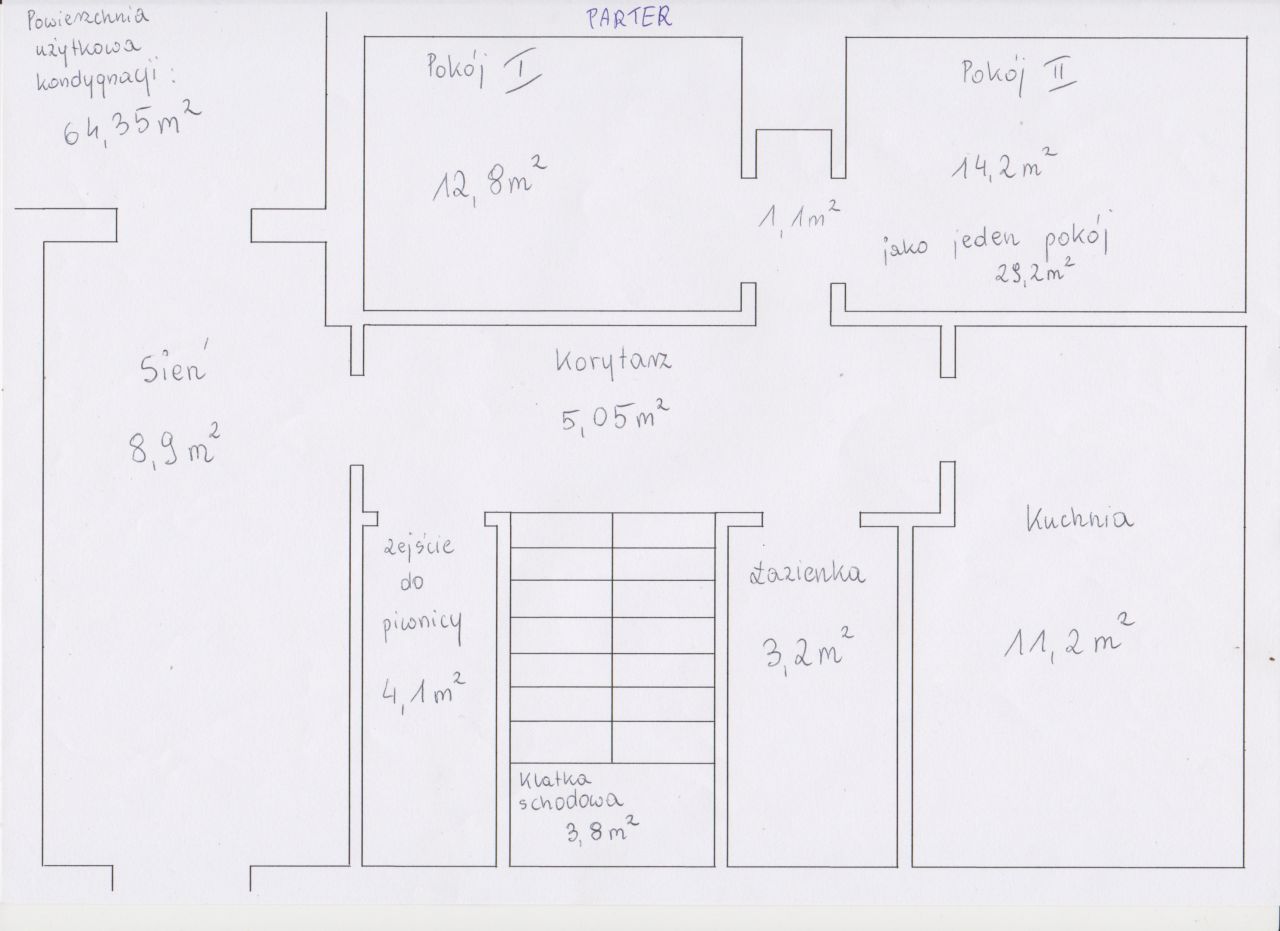 PARTER
Powierzchnia
użytkowa
kondygnacji:
64,35m²
Pokój I
12,8m²
1,1m²
Pokój II
14,2m²
jako jeden pokój
29,2m²
Sień
8,9m²
Korytarz
5,05m²
zejście
do
piwnicy
4,1m²
Klatka
schodowa
3,8m²
Łazienka
3,2m²
Kuchnia
11,2m²